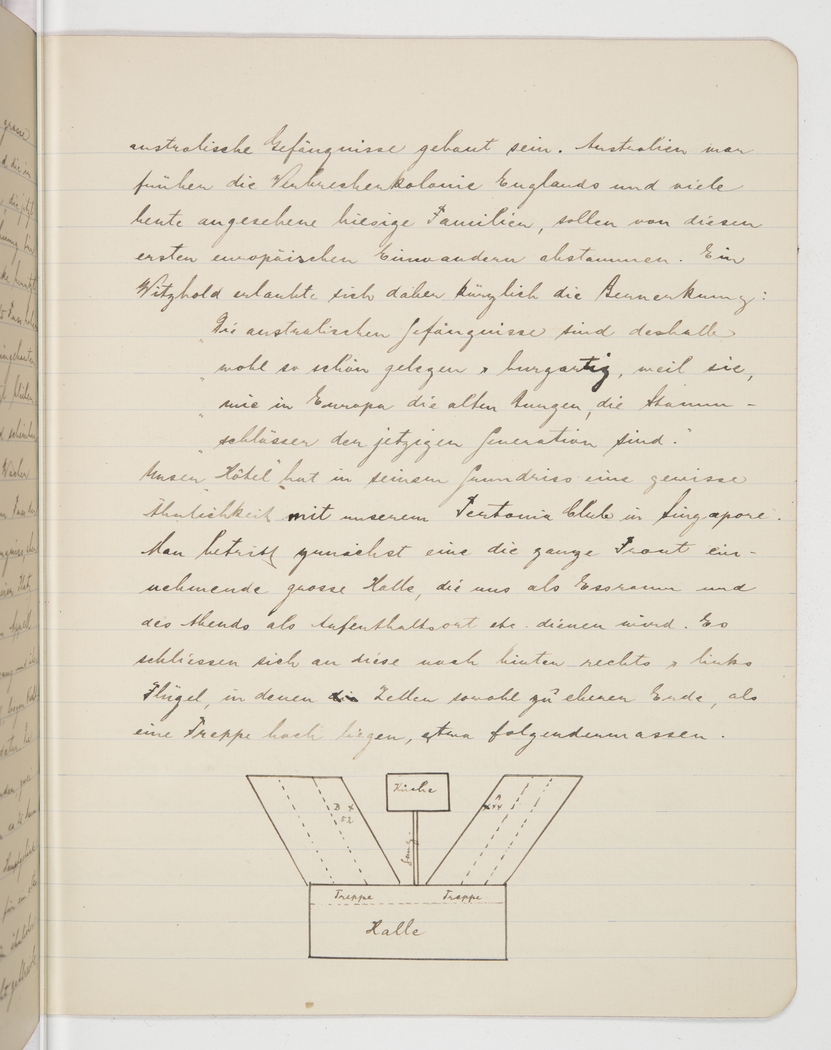 australische Gefängnisse gebaut sein. Australien war
früher die Verbrecherkolonie Englands und viele
heute angesehene hiesige Familien, sollen von diesen
ersten europäischen Einwandern abstammen. Ein
Witzbold erlaubte sich daher kürzlich die Bemerkung:
"Die australischen Gefängnisse sind deshalb
" wohl so schön gelegen & burgartig, weil sie,
" wie in Europa die alten Burgen, die Stamm-
" schlösser der jetzigen Generation sind."
Unser "Hôtel" hat in seinem Grundriss eine gewisse
Ähnlichkeit mit unserem Teutonia Club in Singapore.
Man betritt zunächst eine die ganze Front ein-
nehmende grosse Halle, die uns als Essraum und
des Abends als Aufenthaltsort etc. dienen wird. Es
schliessen sich an diese nach hinten rechts & links
Flügel, in denen die Zellen sowohl zu ebener Erde, als
eine Treppe hoch liegen, etwa folgendermassen.
Küche
B x
52
A
x44
Gang.
Treppe Treppe
Halle